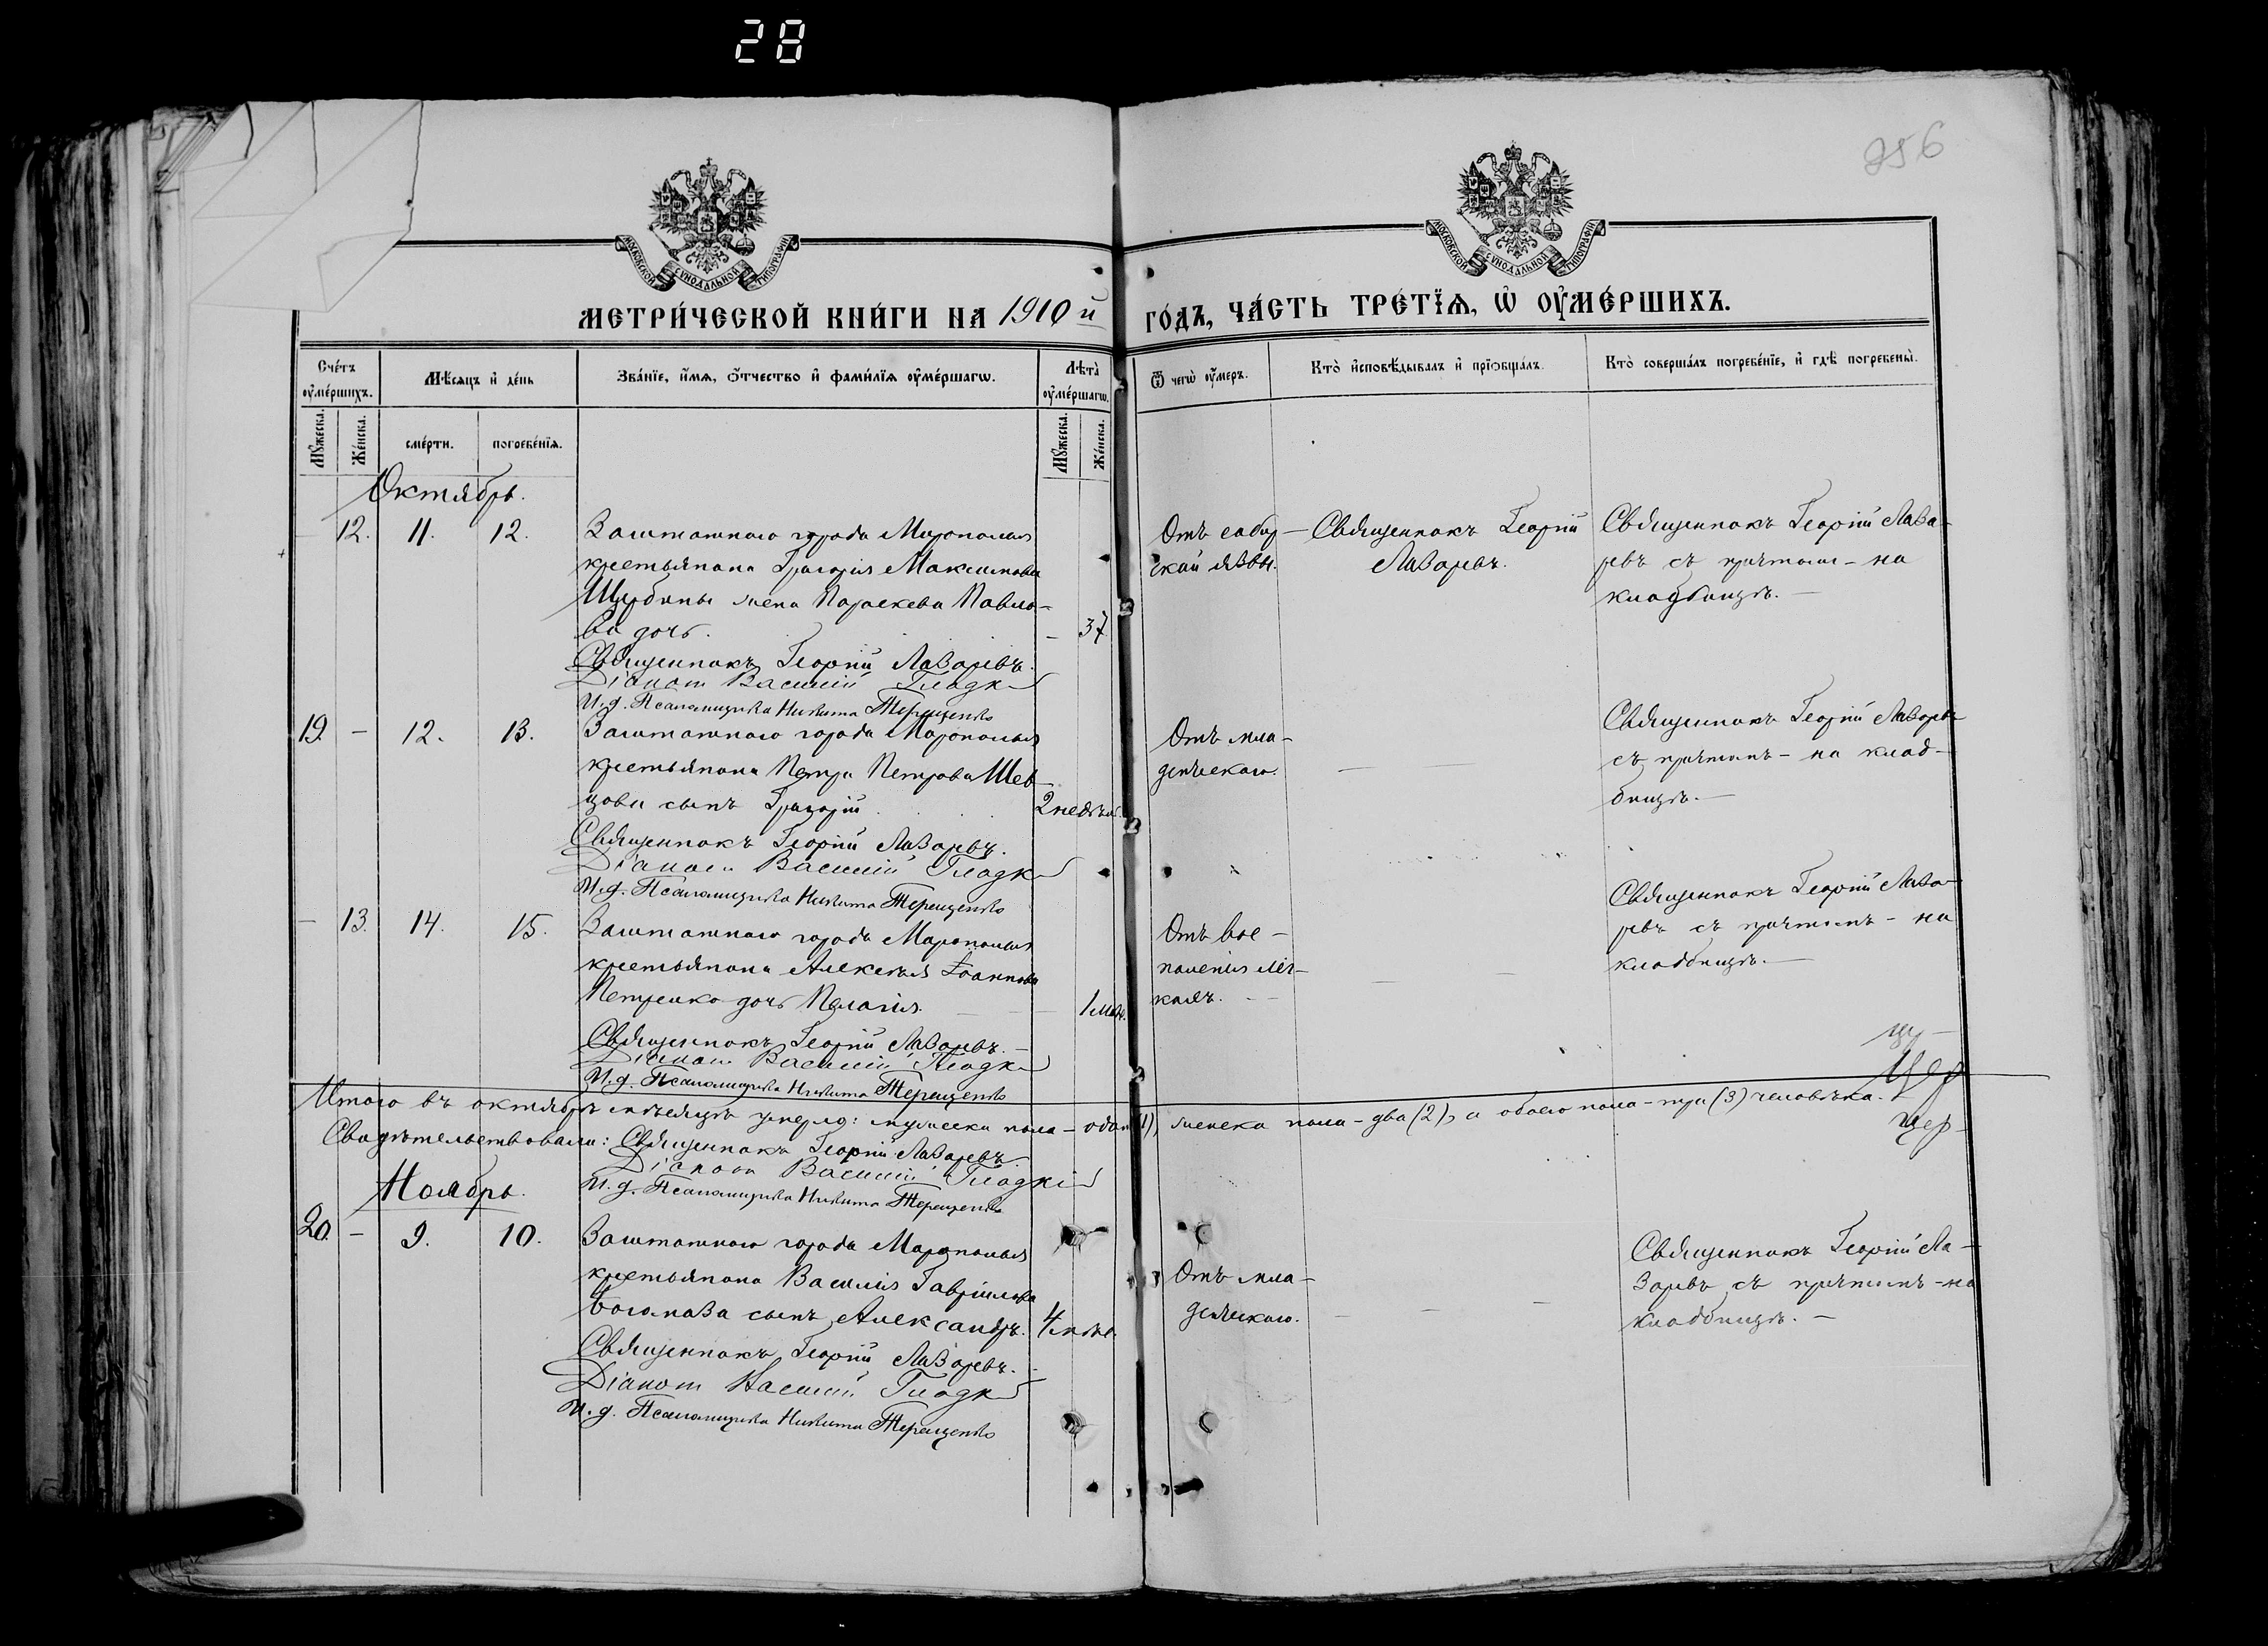 28
256
МОСКОВСКОЙ СѴНОДАЛЬНОЙ ТИПОГРАФІИ
МОСКОВСКОЙ СѴНОДАЛЬНОЙ ТИПОГРАФІИ
МЕТРИ́ЧЕСКОЙ КНИ́ГИ НА 1910 й ГО́ДЪ, ЧА́СТЬ ТРЕ́ТІѦ, Ѡ҆ ОУ҆МЕ́РШИХЪ.
Сче́тъ оу҆ме́ршихъ.
Мѣ́сяцъ и҆ де́нь
Зва́нїе, и҆́мѧ, ѻ҆́тчество и҆ фами́лїѧ оу҆ме́ршагѡ.
Лѣта̀ оу҆ме́ршагѡ.
Ѿ чегѡ̀ оу҆́меръ.
Кто̀ и҆сповѣ́дывалъ и҆ прїѻбща́лъ.
Кто̀ соверша́лъ погребе́нїе, и҆ гдѣ̀ погребены̀.
Мꙋ́жеска.
Же́нска.
сме́рти.
погребе́нїѧ.
Мꙋ́жеска.
Же́нска.
Октябрь.
— 12. 11. 12. Заштатного города Мирополья
крестьянина Григорія Максимова
Щербины жена Параскева Павло-
ва дочь. — 37.
Священникъ Георгій Лазаревъ.
Діаконъ Василій Гладкій
И. д. Псаломщика Никита Терещенко
Священникъ Георгій
Лазаревъ.
Священникъ Георгій Лаза-
ревъ съ причтомъ - на
кладбищѣ. —
19. — 12. 13. Заштатного города Мирополья
крестьянина Петра Петрова Шев-
цова сынъ Григорій 2 недѣл.
Священникъ Георгій Лазаревъ.
Діаконъ Василій Гладкій
И. д. Псаломщика Никита Терещенко
Отъ мла-
денческаго. — —
Священникъ Георгій Лазаревъ
съ причтомъ - на клад-
бищѣ. —
— 13. 14. 15. Заштатного города Мирополья
крестьянина Алексѣя Іоаннова
Петренко дочь Пелагія. — 1 мѣс.
Священникъ Георгій Лазаревъ. —
Діаконъ Василій Гладкій
И. д. Псаломщика Никита Терещенко
Отъ вос-
паленія лег-
кихъ. — —
Священникъ Георгій Лаза-
ревъ съ причтомъ - на
кладбищѣ. —
Итого въ октябрѣ мѣсяцѣ умерло: мужеска пола - одинъ (1), женска пола - два (2), а обоего пола - три (3) человѣка.
Свидѣтельствовали: Священникъ Георгій Лазаревъ.
Діаконъ Василій Гладкій
И. д. Псаломщика Никита Терещенко
Ноябрь.
20. — 9. 10. Заштатного города Мирополья
крестьянина Василія Гавріилова
Богомаза сынъ Александръ. 4 мѣс.
Священникъ Георгій Лазаревъ. —
Діаконъ Василій Гладкій
И. д. Псаломщика Никита Терещенко
Отъ мла-
денческаго. — — —
Священникъ Георгій Ла-
заревъ съ причтомъ - на
кладбищѣ. —